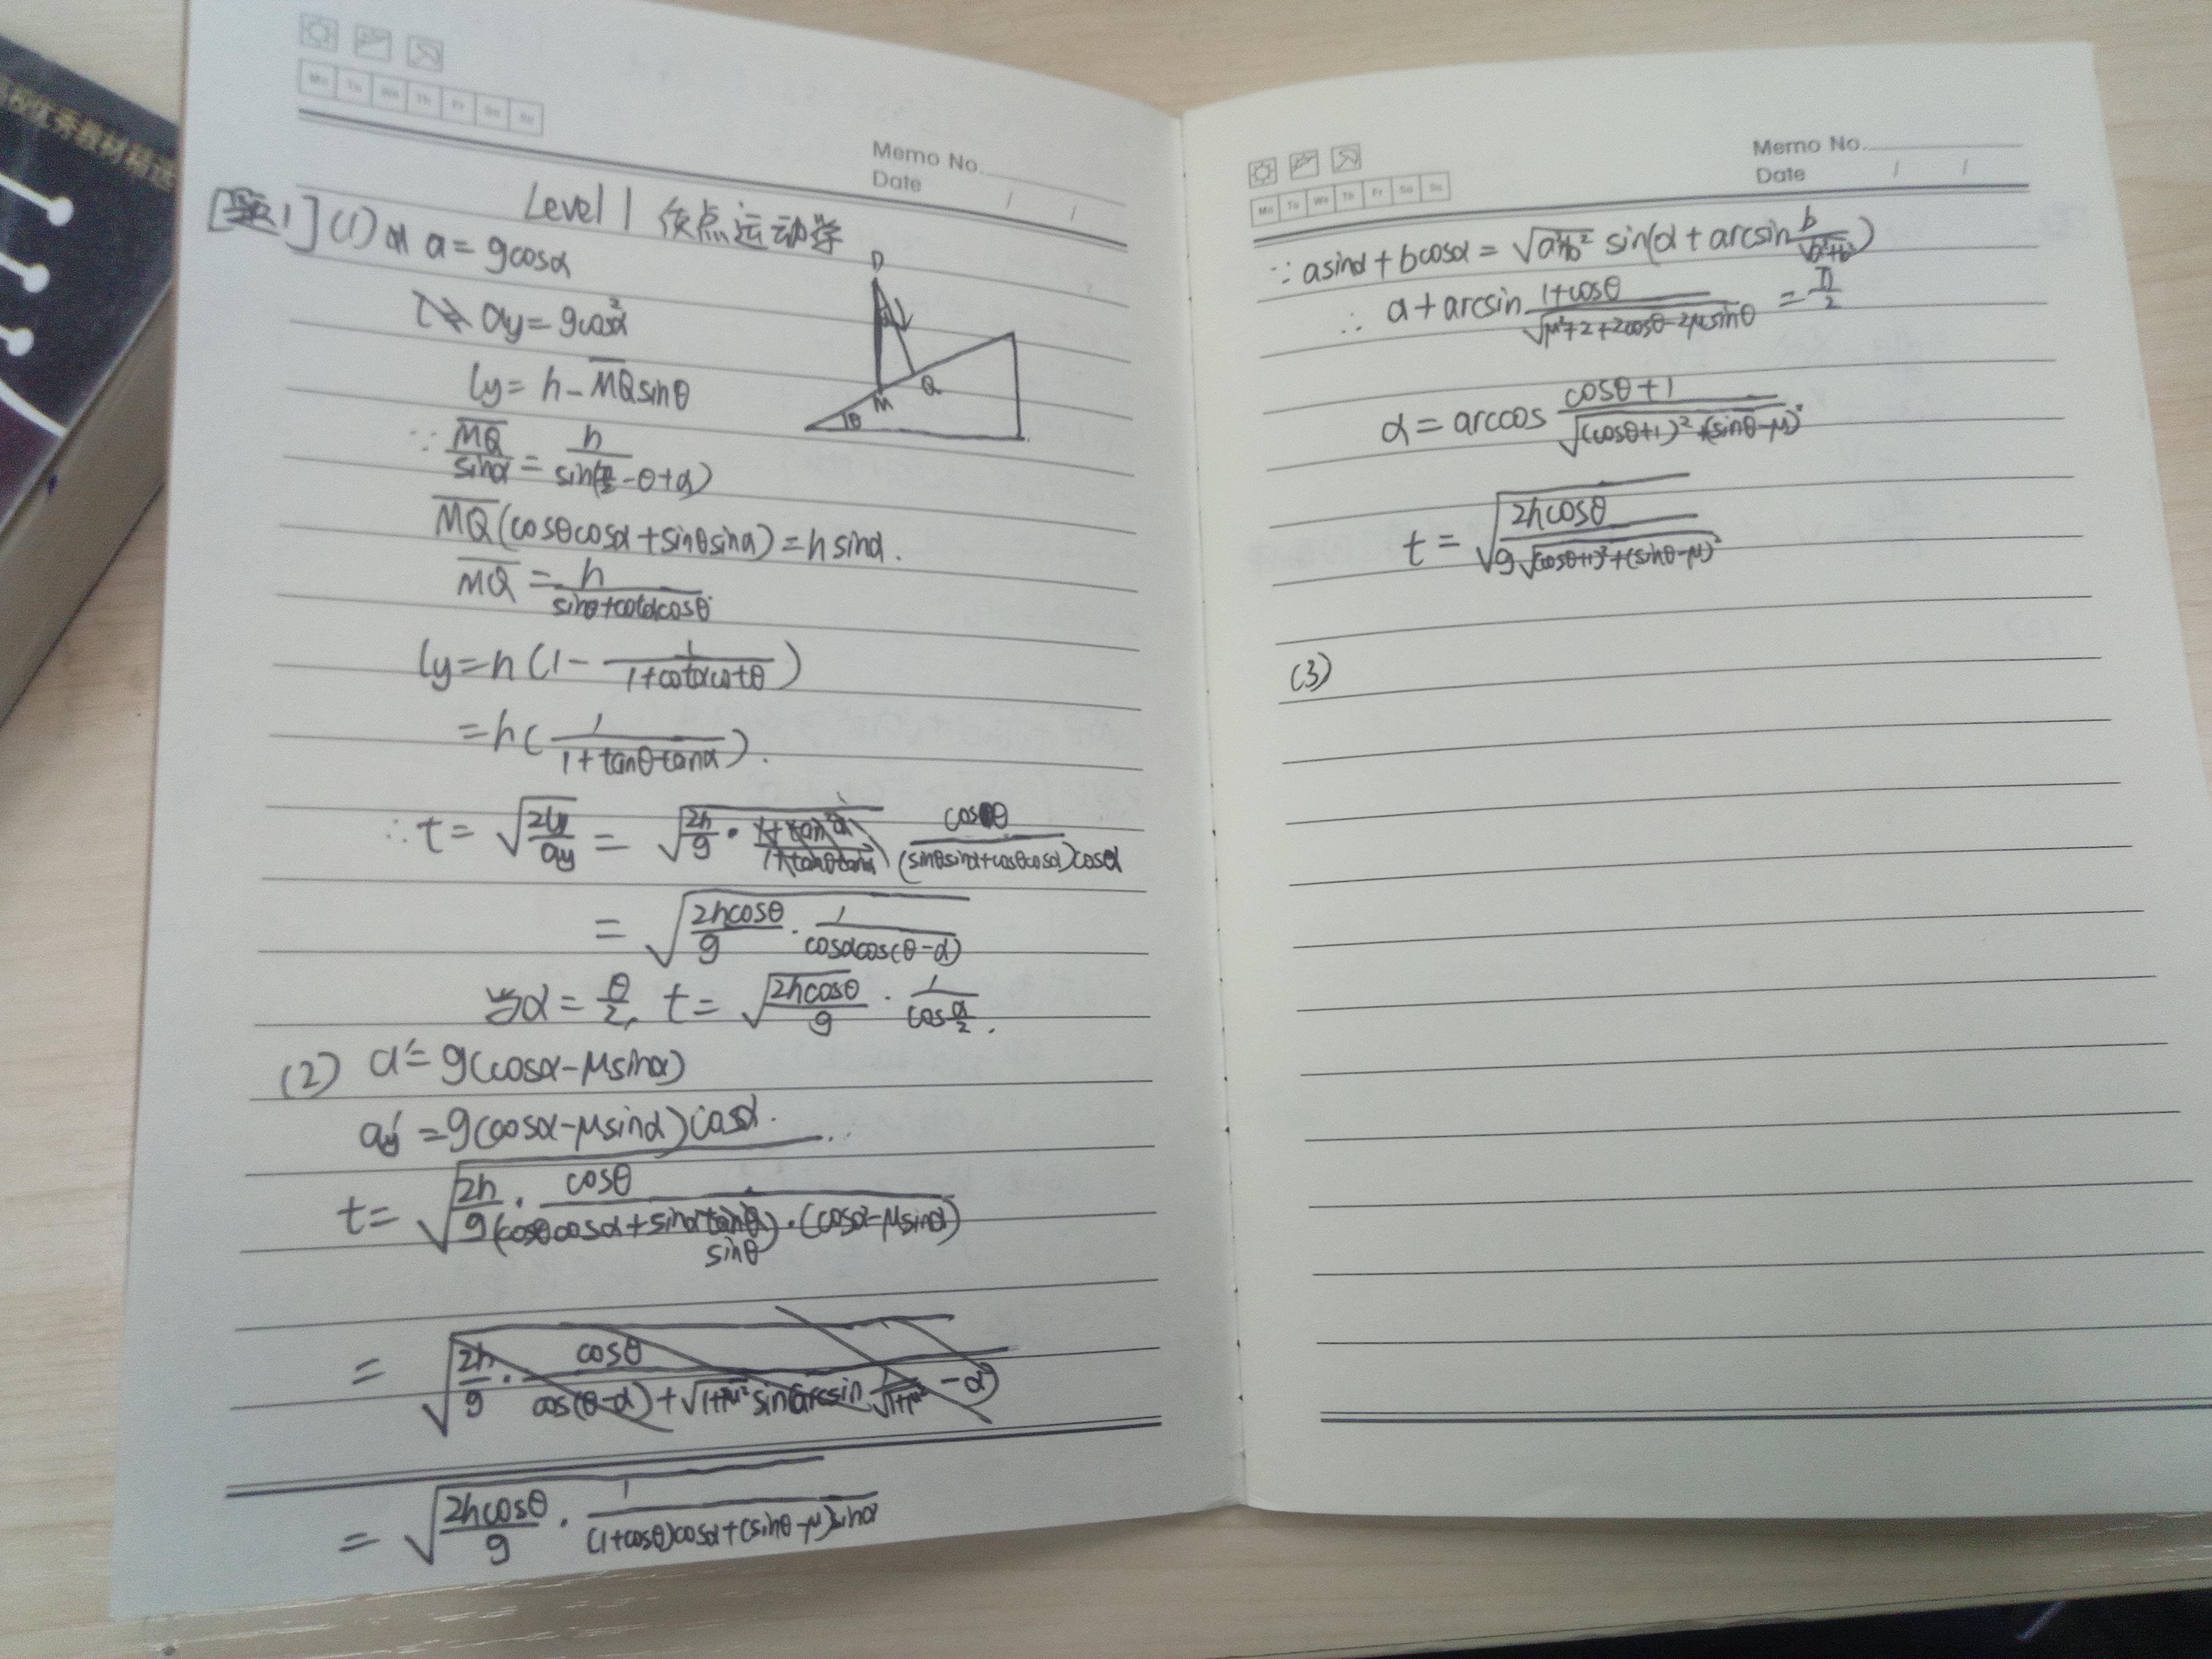 高校优秀教材精选
Mo Tu We Th Fr Sa Su
Memo No.
Date / /
Level 1 质点运动学
[题1] (1) a = gcosα
ay = gcos²α
ly = h - MQ sinθ
∵ MQ/sinα = h/sin(π/2 - θ + α)
MQ(cosθcosα + sinθsinα) = h sinα.
MQ = h/(sinθ + cotαcosθ)
ly = h(1 - 1/(1 + cotαcotθ))
= h(1/(1 + tanθtanα)).
∴ t = √(2ly/ay) = √(2h/g · cosθ/((sinθsinα + cosθcosα)cosα))
= √(2hcosθ/g · 1/(cosαcos(θ - α)))
当α = θ/2, t = √(2hcosθ/g) · 1/cos(α/2).
(2) a' = g(cosα - μsinα)
ay' = g(cosα - μsinα)cosα.
t = √(2h/g · cosθ/((cosθcosα + sinαsinθ)·(cosα - μsinα)))
= √(2h/g · cosθ/(cos(θ - α) + √(1+μ²) sin(arcsin 1/√(1+μ²) - α)))
= √(2hcosθ/g · 1/((1 + cosθ)cosα + (sinθ - μ)sinα))
P
α
Q
M
θ
Mo Tu We Th Fr Sa Su
Memo No.
Date / /
∵ asinα + bcosα = √(a²+b²) sin(α + arcsin b/√(a²+b²))
∴ α + arcsin (1 + cosθ)/√(μ² + 2 + 2cosθ - 2μsinθ) = π/2
α = arccos (cosθ + 1)/√((cosθ+1)² + (sinθ-μ)²)
t = √(2hcosθ/(g√((cosθ+1)² + (sinθ-μ)²)))
(3)